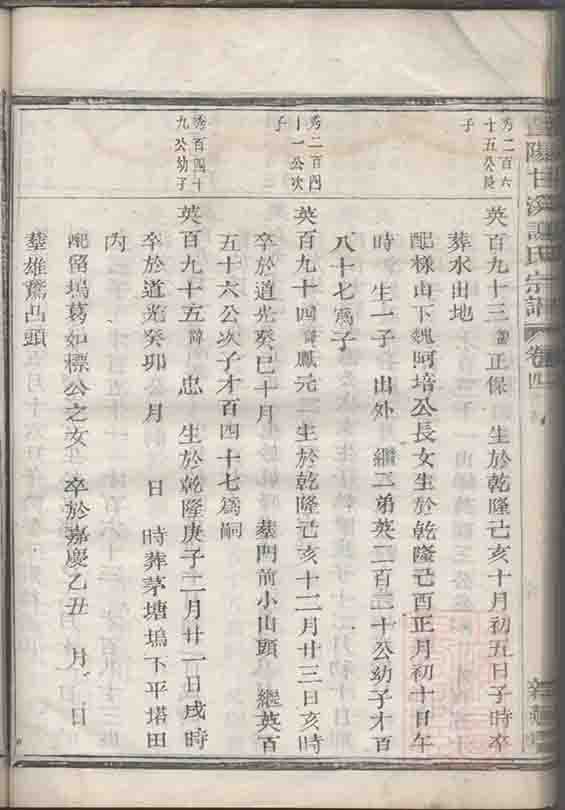 陽甘溪
氏宗譜
卷四
秀二百六
十五公長
子
英百九十三諱正保 生於乾隆己亥十月初五日子時卒
葬水田地
配樣山下魏阿培公長女生於乾隆己酉正月初十日午
時 生一子 出外 繼三弟英二百三十公幼子才百
八十七爲子
秀二百四
十一公次
子
英百九十四諱鳳元 生於乾隆己亥十二月廿三日亥時
卒於道光癸巳十月 墓門前小山頭 繼英百
五十六公次子才百四十七爲嗣
秀百四十
九公幼子
英百九十五諱 忠 生於乾隆庚子二月廿一日戌時
卒於道光癸卯 月 日 時葬茅塘塢下平塔田
內
配留塢葛如標公之女 卒於嘉慶乙丑 月 日
葬雄鵞凸頭